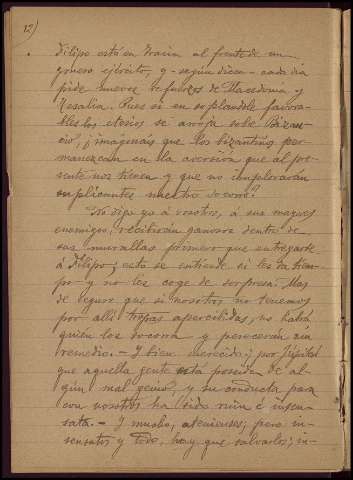 12)
Filipo está en Tracia al frente de un
grueso ejército, y - según dicen - cada día
pide nuevos refuerzos de Macedonia y
Tesalia. Pues si en soplándole favora-
bles los etesios se arroja sobre Bizan-
cio, ¿imagináis que los bizantinos per-
manezcan en la aversión que al pre-
sente nos tienen y que no implorarán
suplicantes nuestro socorro?
No digo yo á vosotros, á sus mayores
enemigos, recibirán ganosos dentro de
sus murallas primero que entregarse
á Filipo; esto se entiende si les da tiem-
po y no les coge de sorpresa. Mas
de seguro que si nosotros no tenemos
por allí tropas apercibidas, no habrá
quién los socorra y perecerán sin
remedio. - Y bien merecido; por Júpiter
que aquella gente está poseída de al-
gún mal genio, y su conducta para
con nosotros ha sido ruin é insen-
sata. - Y mucho, atenienses; pero in-
sensatos y todo, hay que salvarlos; in-